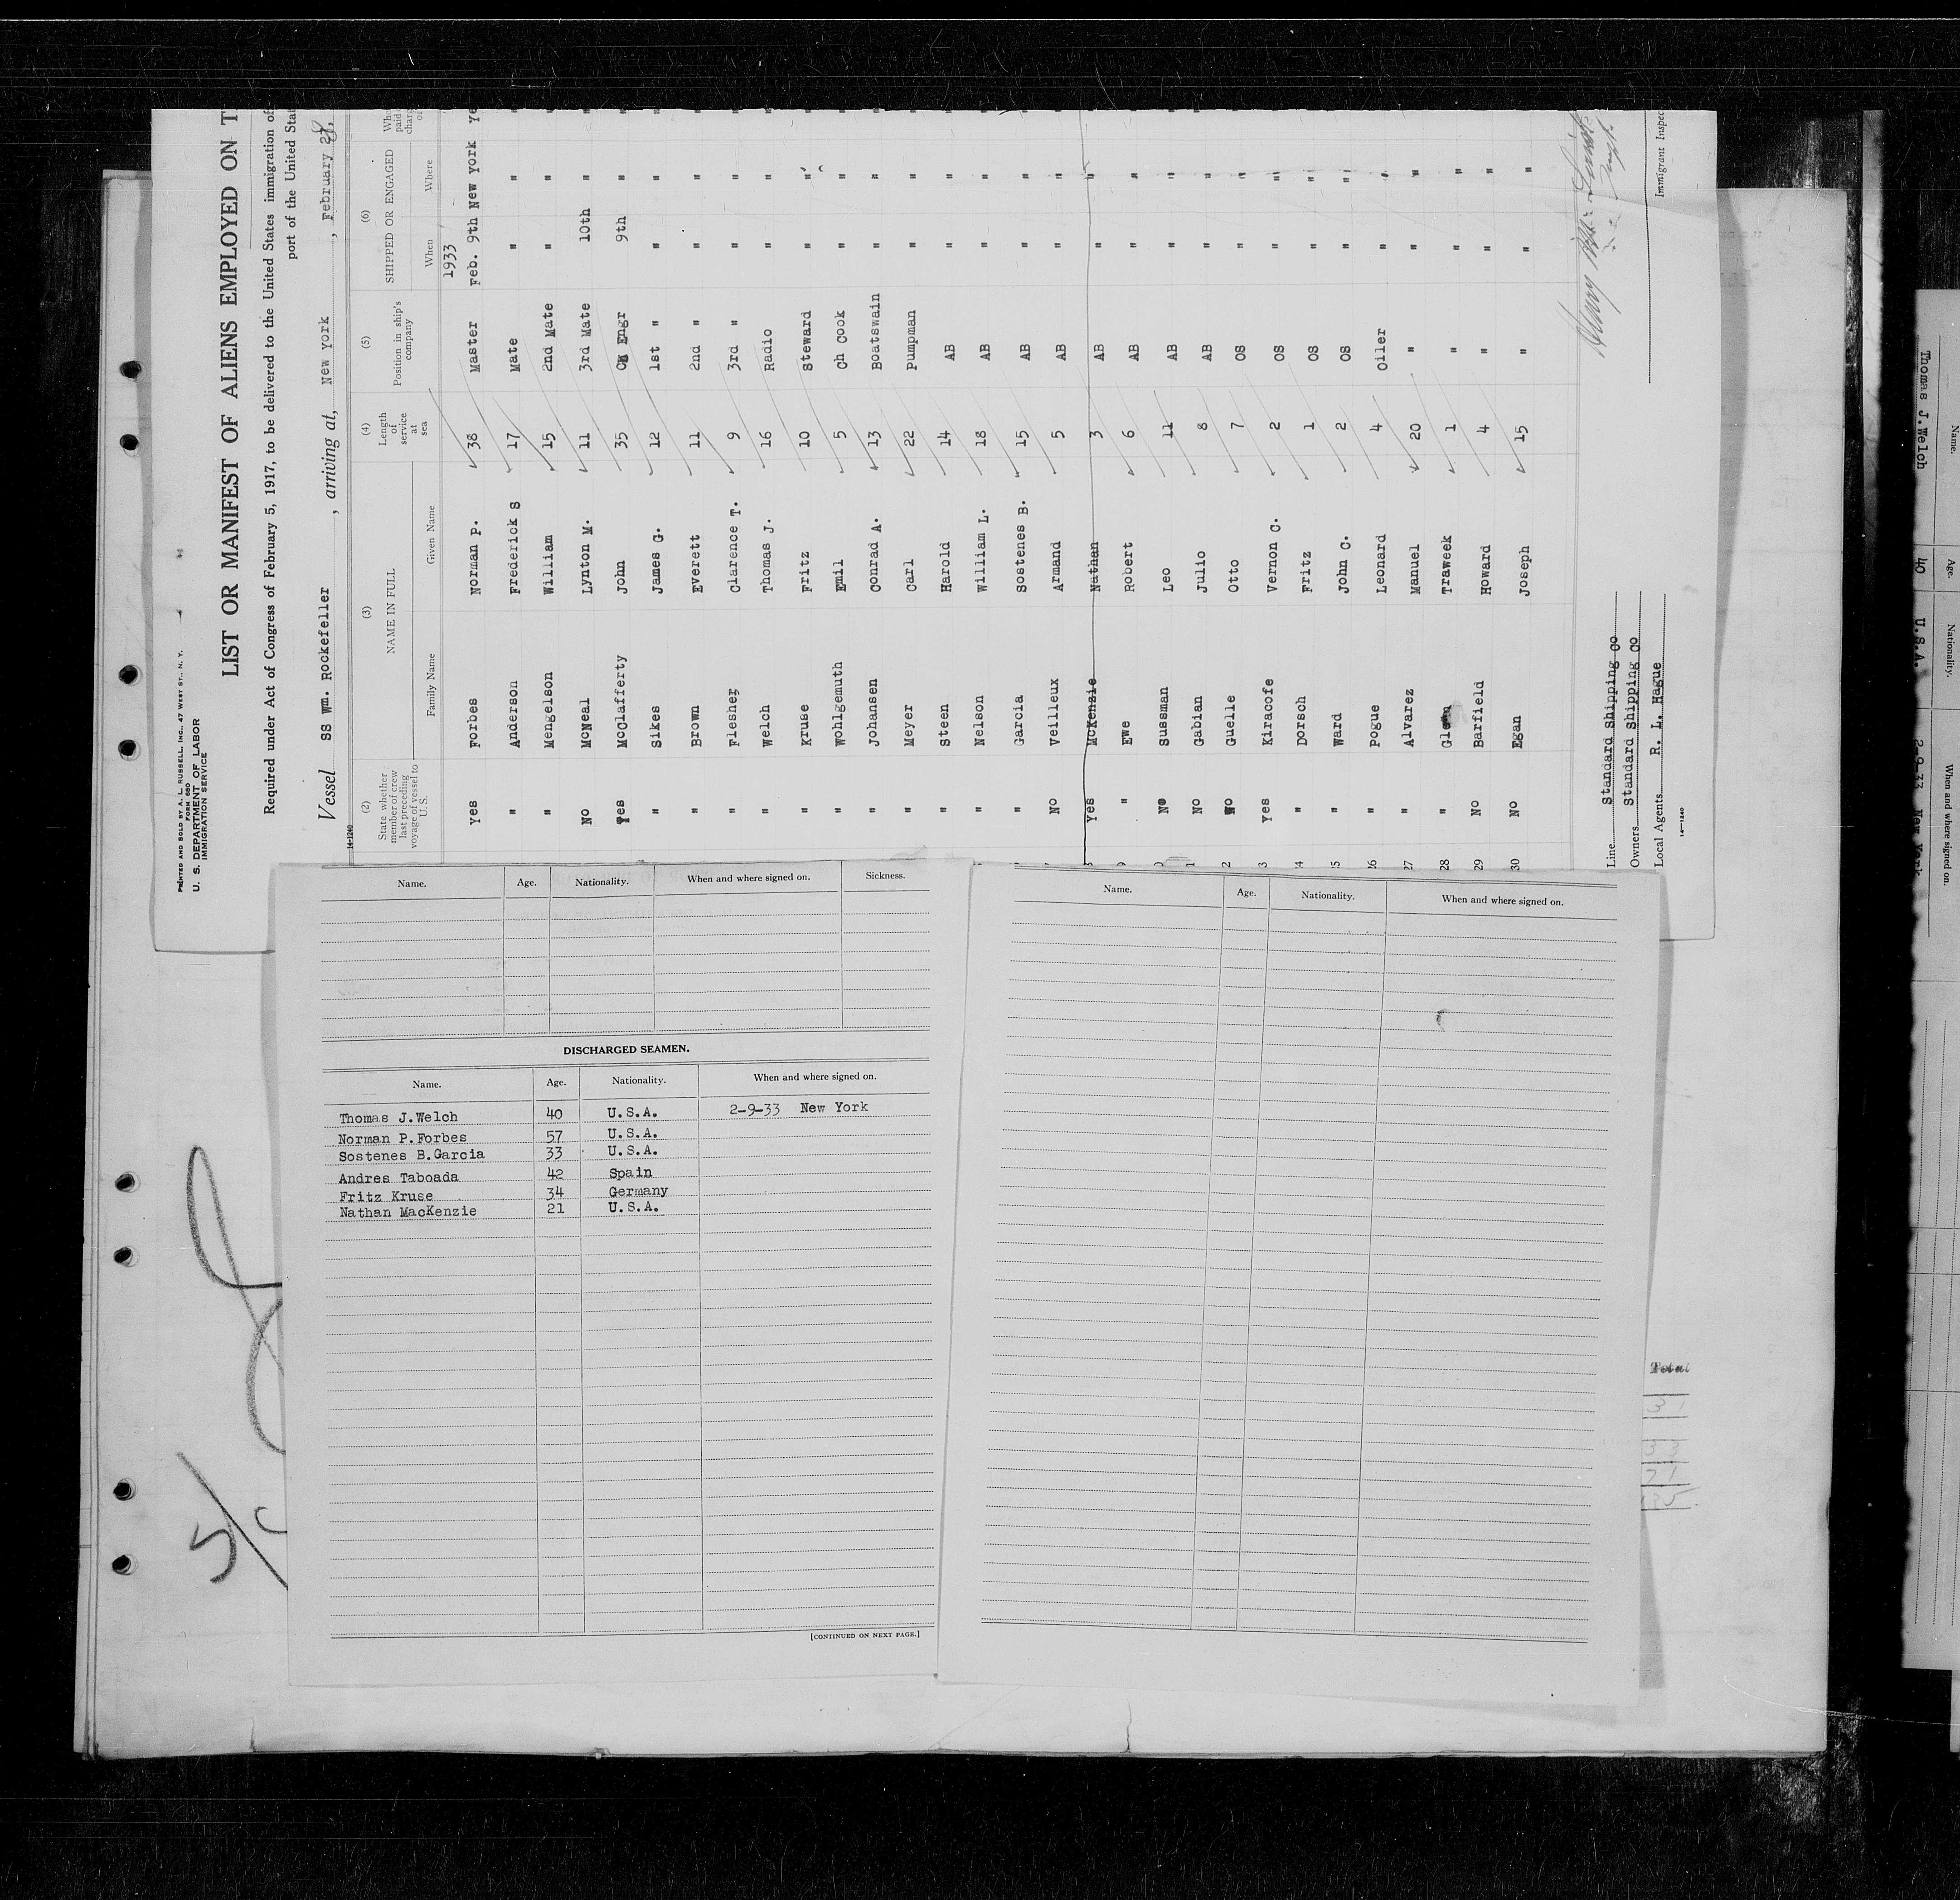 PRINTED AND SOLD BY A. L. RUSSELL, INC., 47 WEST ST., N. Y.
FORM 680
U. S. DEPARTMENT OF LABOR
IMMIGRATION SERVICE
LIST OR MANIFEST OF ALIENS EMPLOYED ON T
Required under Act of Congress of February 5, 1917, to be delivered to the United States immigration of
port of the United Stat
Vessel SS Wm. Rockefeller , arriving at, New York , February 28,
14-1240
(2) (3) (4) (5) (6)
State whether member of crew last preceding voyage of vessel to U.S. NAME IN FULL Length of service at sea Position in ship's company SHIPPED OR ENGAGED
Family Name Given Name When Where
1933
Yes Forbes Norman P. 38 Master Feb. 9th New York Ye
" Anderson Frederick S 17 Mate " " "
" Mengelson William 15 2nd Mate " " "
No McNeal Lynton M. 11 3rd Mate 10th " "
Yes McClafferty John 35 Ch Engr 9th " "
" Sikes James G. 12 1st " " " "
" Brown Everett 11 2nd " " " "
" Flesher Clarence T. 9 3rd " " " "
" Welch Thomas J. 16 Radio " " "
" Kruse Fritz 10 Steward " " "
" Wohlgemuth Emil 5 Ch cook " " "
" Johansen Conrad A. 13 Boatswain " " "
" Meyer Carl 22 Pumpman " " "
" Steen Harold 14 AB " " "
" Nelson William L. 18 AB " " "
" Garcia Sostenes B. 15 AB " " "
No Veilleux Armand 5 AB " " "
8 Yes McKenzie Nathan 3 AB " " "
9 " Ewe Robert 6 AB " " "
0 No Sussman Leo 11 AB " " "
1 No Gabian Julio 8 AB " " "
2 No Guelle Otto 7 OS " " "
3 Yes Kiracofe Vernon C. 2 OS " " "
14 " Dorsch Fritz 1 OS " " "
15 " Ward John C. 2 OS " " "
26 " Pogue Leonard 4 Oiler " " "
27 " Alvarez Manuel 20 " " " "
28 " Glenn Traweek 1 " " " "
29 No Barfield Howard 4 " " " "
30 No Egan Joseph 15 " " " "
Line Standard Shipping Co
Owners Standard Shipping Co
Local Agents R. L. Hague
Immigrant Inspec
14-1240
Name. Age. Nationality. When and where signed on. Sickness.
DISCHARGED SEAMEN.
Name. Age. Nationality. When and where signed on.
Thomas J.Welch 40 U.S.A. 2-9-33 New York
Norman P.Forbes 57 U.S.A.
Sostenes B.Garcia 33 U.S.A.
Andres Taboada 42 Spain
Fritz Kruse 34 Germany
Nathan MacKenzie 21 U.S.A.
[CONTINUED ON NEXT PAGE.]
Name. Age. Nationality. When and where signed on.
Total
31
33
71
135
5/
Name. Age. Nationality. When and where signed on.
Thomas J. Welch 40 U.S.A. 2-9-33 New York